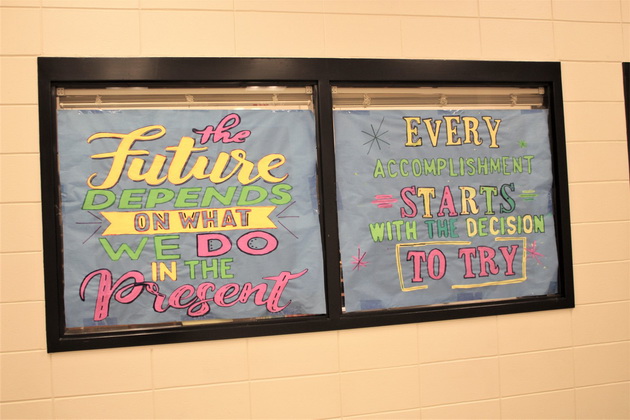 the
Future
DEPENDS
ON WHAT
WE DO
IN THE
Present
EVERY
ACCOMPLISHMENT
STARTS
WITH THE DECISION
TO TRY